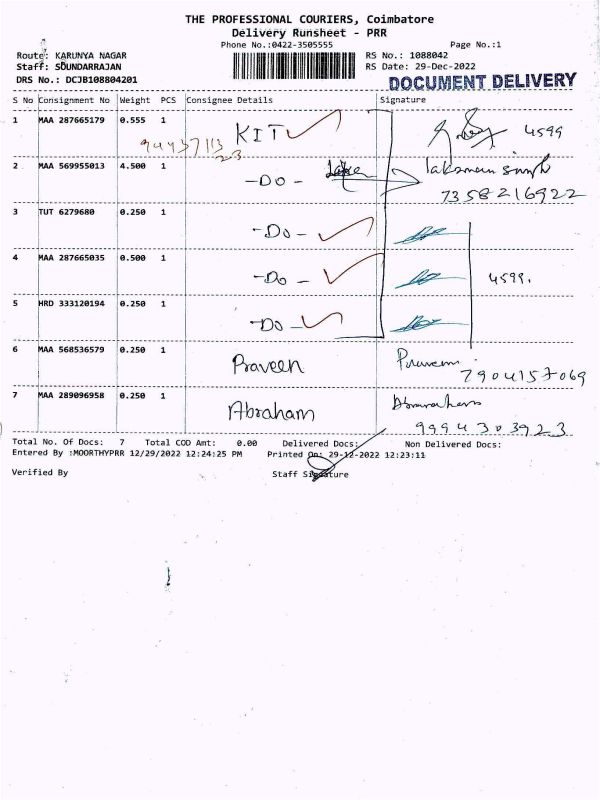 THE PROFESSIONAL COURIERS, Coimbatore
Delivery Runsheet - PRR
Phone No.:0422-3505555 Page No.:1
Route: KARUNYA NAGAR RS No.: 1088042
Staff: SOUNDARRAJAN RS Date: 29-Dec-2022
DRS No.: DCJB108804201 DOCUMENT DELIVERY
S No Consignment No Weight PCS Consignee Details Signature
1 MAA 287665179 0.555 1 KIT 4599
94437113
23
2 MAA 569955013 4.500 1 -DO- laksman singh
7358216922
3 TUT 6279680 0.250 1 -Do-
4 MAA 287665035 0.500 1 -Do- 4599.
5 HRD 333120194 0.250 1 -Do-
6 MAA 568536579 0.250 1 Praveen Praveen
7904157069
7 MAA 289096958 0.250 1 Abraham Abraham
9994303923
Total No. Of Docs: 7 Total COD Amt: 0.00 Delivered Docs: Non Delivered Docs:
Entered By :MOORTHYPRR 12/29/2022 12:24:25 PM Printed On: 29-12-2022 12:23:11
Verified By Staff Signature